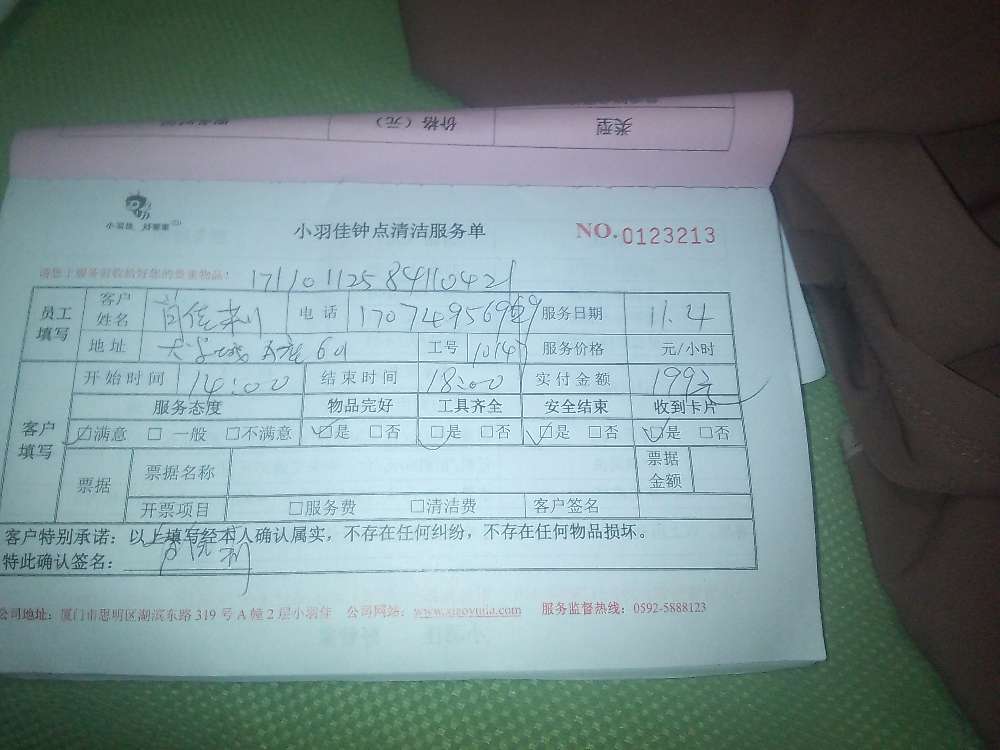 类型 价格（元）
小羽佳 好管家
小羽佳钟点清洁服务单 NO.0123213
请您上服务前收拾好您的贵重物品！ 17110112584110421
员工填写 客户姓名 电话 服务日期 11.4
地址 601 工号 1014 服务价格 元/小时
客户填写 开始时间 14:00 结束时间 18:00 实付金额 199元
服务态度 物品完好 工具齐全 安全结束 收到卡片
☑满意 □一般 □不满意 ☑是 □否 ☑是 □否 ☑是 □否 ☑是 □否
票据 票据名称 票据金额
开票项目 □服务费 □清洁费 客户签名
客户特别承诺：以上填写经本人确认属实，不存在任何纠纷，不存在任何物品损坏。
特此确认签名：
公司地址：厦门市思明区湖滨东路 319 号 A 幢 2 层小羽佳 公司网站：www.xiaoyujia.com 服务监督热线：0592-5888123